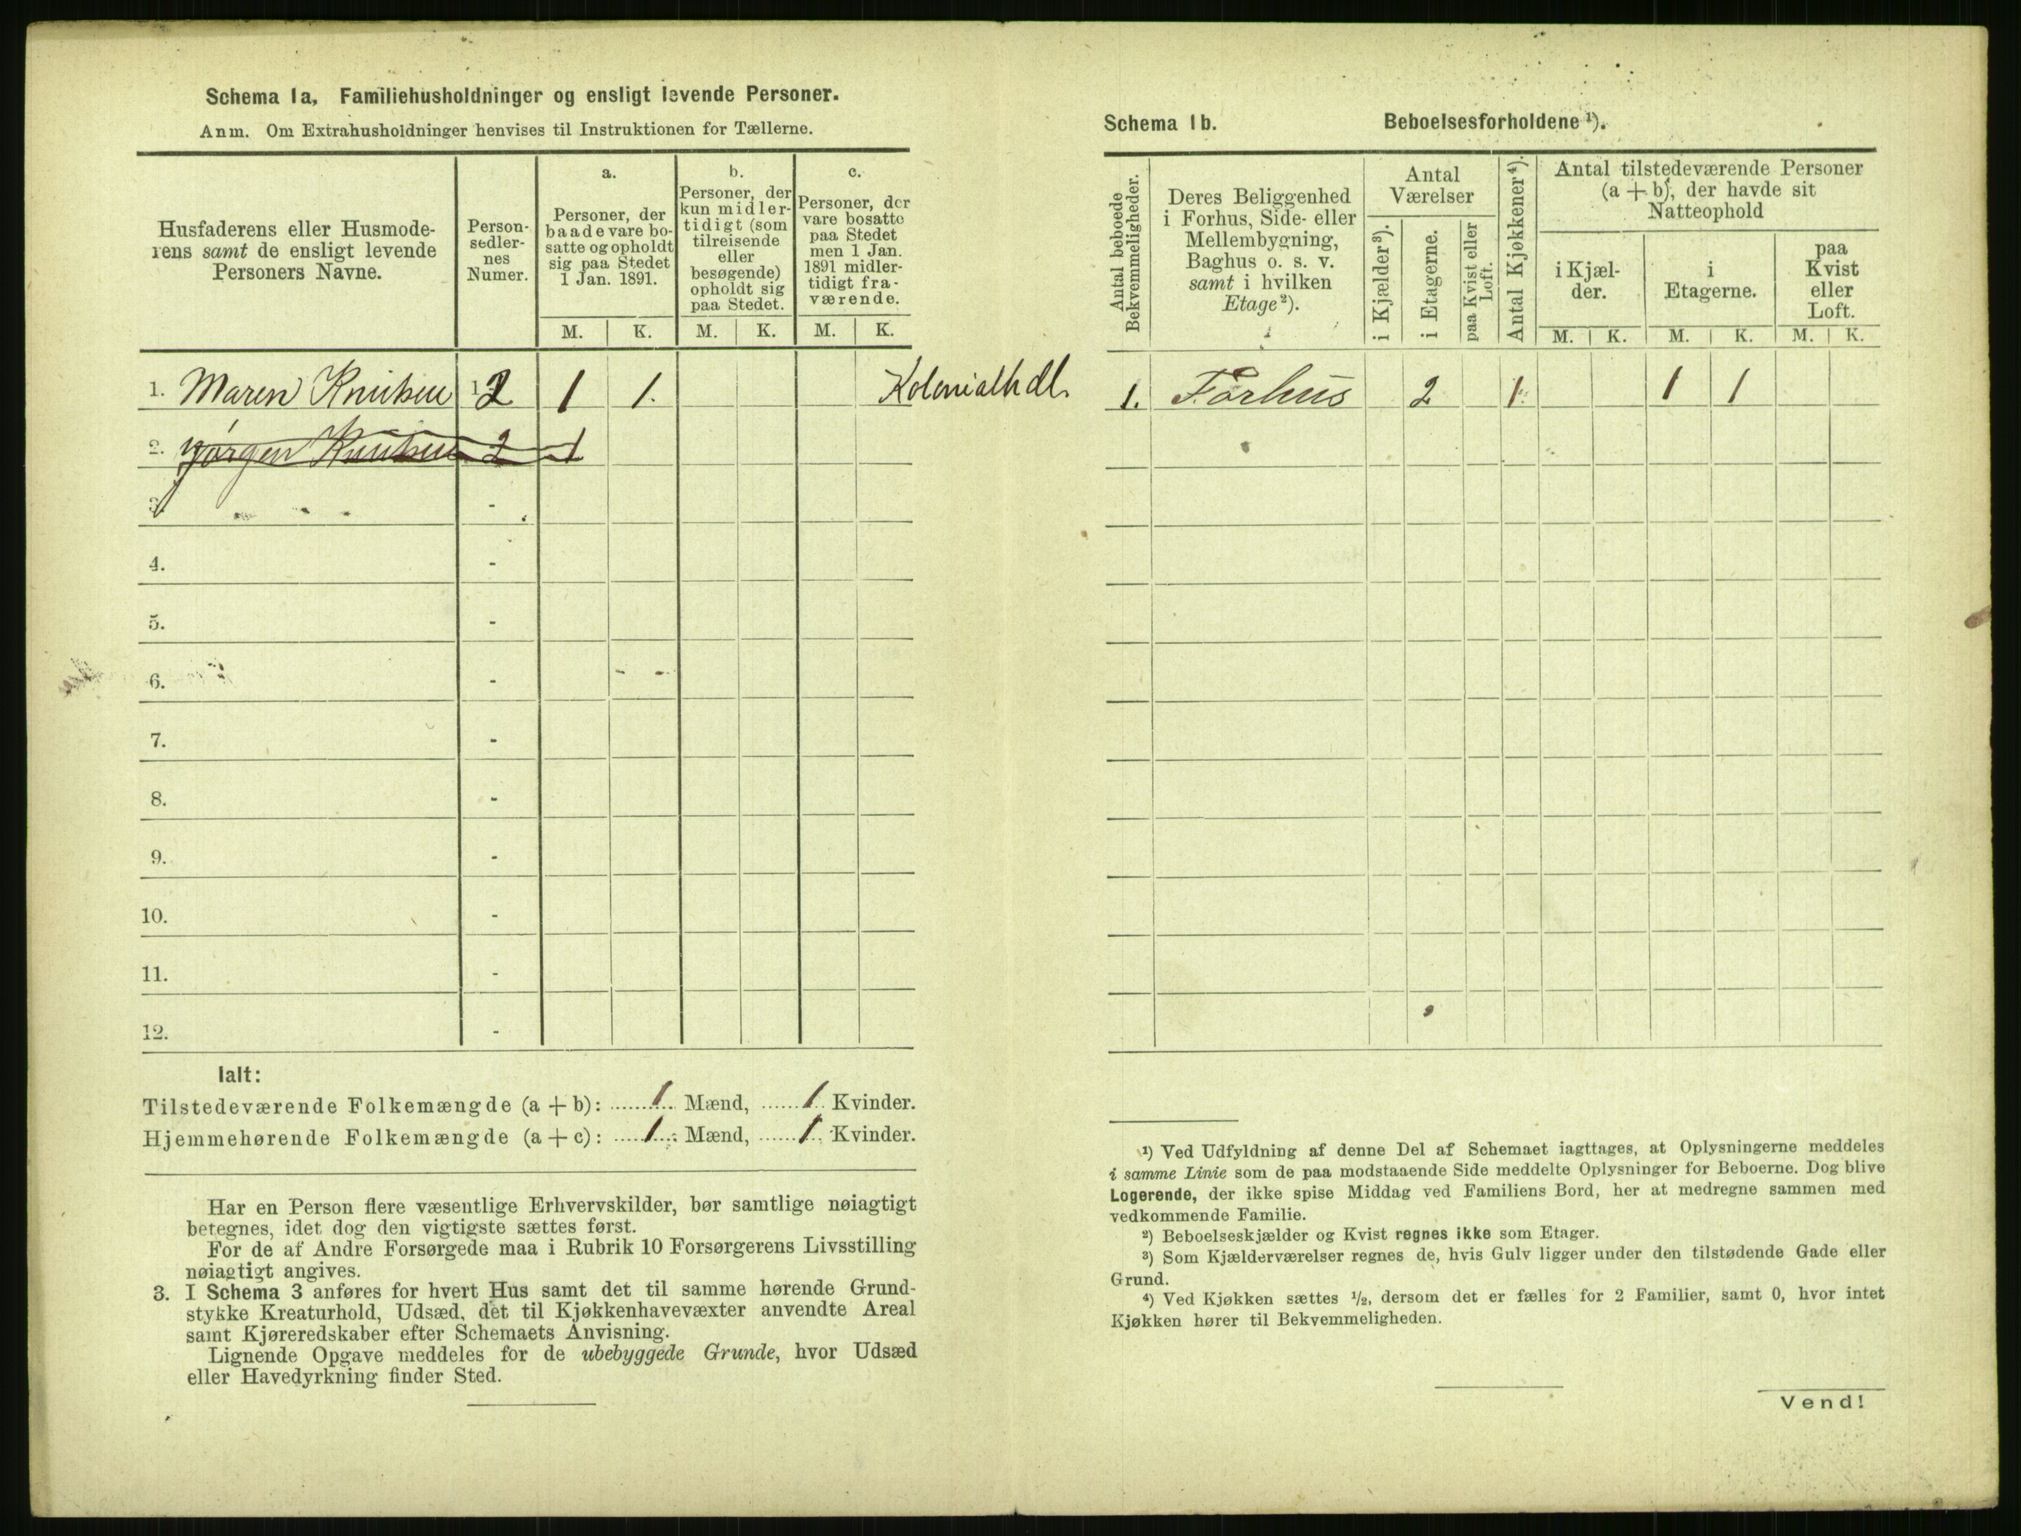 Schema 1a, Familiehusholdninger og ensligt levende Personer.
Anm. Om Extrahusholdninger henvises til Instruktionen for Tællerne.
Husfaderens eller Husmode-
rens samt de ensligt levende
Personers Navne.
Person-
sedler-
nes
Numer.
a.
Personer, der
baade vare bo-
satte og opholdt
sig paa Stedet
1 Jan. 1891.
b.
Personer, der
kun midler-
tidigt (som
tilreisende
eller
besøgende)
opholdt sig
paa Stedet.
c.
Personer, der
vare bosatte
paa Stedet
men 1 Jan.
1891 midler-
tidigt fra-
værende.
M. K. M. K. M. K.
1. Maren Knutsen 2 1 1. Kolonialhdl.
2. Jørgen Knutsen 2 1
3. -
4. -
5. -
6. -
7. -
8. -
9. -
10. -
11. -
12. -
Ialt:
Tilstedeværende Folkemængde (a + b): 1 Mænd, 1 Kvinder.
Hjemmehørende Folkemængde (a + c): 1 Mænd, 1 Kvinder.
Har en Person flere væsentlige Erhvervskilder, bør samtlige nøiagtigt
betegnes, idet dog den vigtigste sættes først.
For de af Andre Forsørgede maa i Rubrik 10 Forsørgerens Livsstilling
nøiagtigt angives.
3. I Schema 3 anføres for hvert Hus samt det til samme hørende Grund-
stykke Kreaturhold, Udsæd, det til Kjøkkenhavevæxter anvendte Areal
samt Kjøreredskaber efter Schemaets Anvisning.
Lignende Opgave meddeles for de ubebyggede Grunde, hvor Udsæd
eller Havedyrkning finder Sted.
Schema 1b. Beboelsesforholdene ¹).
Antal beboede
Bekvemmeligheder.
Deres Beliggenhed
i Forhus, Side- eller
Mellembygning,
Baghus o. s. v.
samt i hvilken
Etage ²).
Antal
Værelser
i Kjælder ³).
i Etagerne.
paa Kvist eller
Loft.
Antal Kjøkkener ⁴).
Antal tilstedeværende Personer
(a + b), der havde sit
Natteophold
i Kjæl-
der.
i
Etagerne.
paa
Kvist
eller
Loft.
M. K. M. K. M. K.
1. Forhus 2 1 1 1
¹) Ved Udfyldning af denne Del af Schemaet iagttages, at Oplysningerne meddeles
i samme Linie som de paa modstaaende Side meddelte Oplysninger for Beboerne. Dog blive
Logerende, der ikke spise Middag ved Familiens Bord, her at medregne sammen med
vedkommende Familie.
²) Beboelseskjælder og Kvist regnes ikke som Etager.
³) Som Kjælderværelser regnes de, hvis Gulv ligger under den tilstødende Gade eller
Grund.
⁴) Ved Kjøkken sættes ½, dersom det er fælles for 2 Familier, samt 0, hvor intet
Kjøkken hører til Bekvemmeligheden.
Vend!